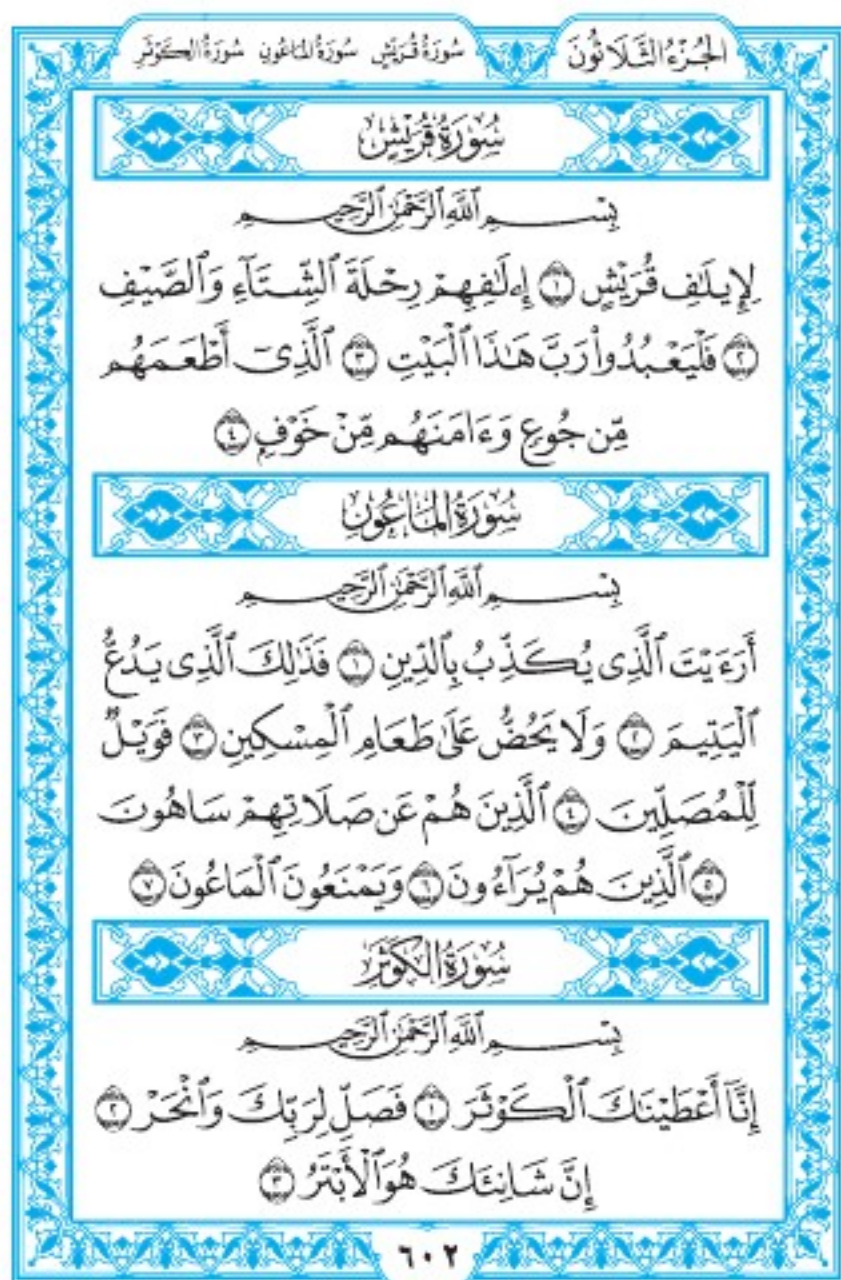 الجُزْءُ الثَّلَاثُونَ سُورَةُ قُرَيْشٍ سُورَةُ المَاعُونِ سُورَةُ الكَوْثَرِ
سُورَةُ قُرَيْشٍ
بِسْمِ ٱللَّهِ ٱلرَّحْمَٰنِ ٱلرَّحِيمِ
لِإِيلَٰفِ قُرَيْشٍ ١ إِۦلَٰفِهِمْ رِحْلَةَ ٱلشِّتَآءِ وَٱلصَّيْفِ
٢ فَلْيَعْبُدُوا۟ رَبَّ هَٰذَا ٱلْبَيْتِ ٣ ٱلَّذِىٓ أَطْعَمَهُم
مِّن جُوعٍ وَءَامَنَهُم مِّنْ خَوْفٍۭ ٤
سُورَةُ المَاعُونِ
بِسْمِ ٱللَّهِ ٱلرَّحْمَٰنِ ٱلرَّحِيمِ
أَرَءَيْتَ ٱلَّذِى يُكَذِّبُ بِٱلدِّينِ ١ فَذَٰلِكَ ٱلَّذِى يَدُعُّ
ٱلْيَتِيمَ ٢ وَلَا يَحُضُّ عَلَىٰ طَعَامِ ٱلْمِسْكِينِ ٣ فَوَيْلٌ
لِّلْمُصَلِّينَ ٤ ٱلَّذِينَ هُمْ عَن صَلَاتِهِمْ سَاهُونَ
٥ ٱلَّذِينَ هُمْ يُرَآءُونَ ٦ وَيَمْنَعُونَ ٱلْمَاعُونَ ٧
سُورَةُ الكَوْثَرِ
بِسْمِ ٱللَّهِ ٱلرَّحْمَٰنِ ٱلرَّحِيمِ
إِنَّآ أَعْطَيْنَٰكَ ٱلْكَوْثَرَ ١ فَصَلِّ لِرَبِّكَ وَٱنْحَرْ ٢
إِنَّ شَانِئَكَ هُوَ ٱلْأَبْتَرُ ٣
٦٠٢